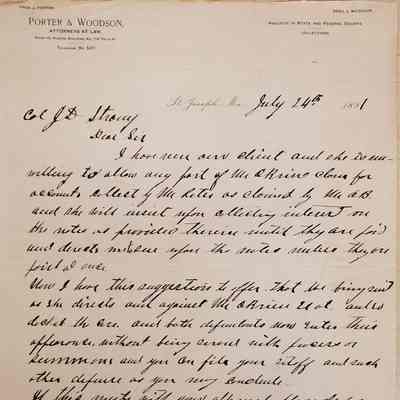 PORTER & WOODSON,
ATTORNEYS AT LAW.
PRACTICE IN STATE AND FEDERAL COURTS
COLLECTIONS
St. Joseph, Mo. July 24th 1891
Col J D Strong
Dear Sir
I have seen our client and she is un-
willing to allow any part of Mr O'Briens claim for
accounts collect by Mr Bates as claimed by Mr O'B.
and she will insist upon collecting interest on
the notes as provided therein until they are paid
and directs me to sue upon the notes unless they are
paid at once.
Now I have this suggestions to offer. that we bring suit
as she directs and against Mr O'Brien et al. and
docket the case. and both defendants now enter their
appearance without being served with process or
summons and you can file your setoff and such
other defense as you may conclude.
If this meets with your approval